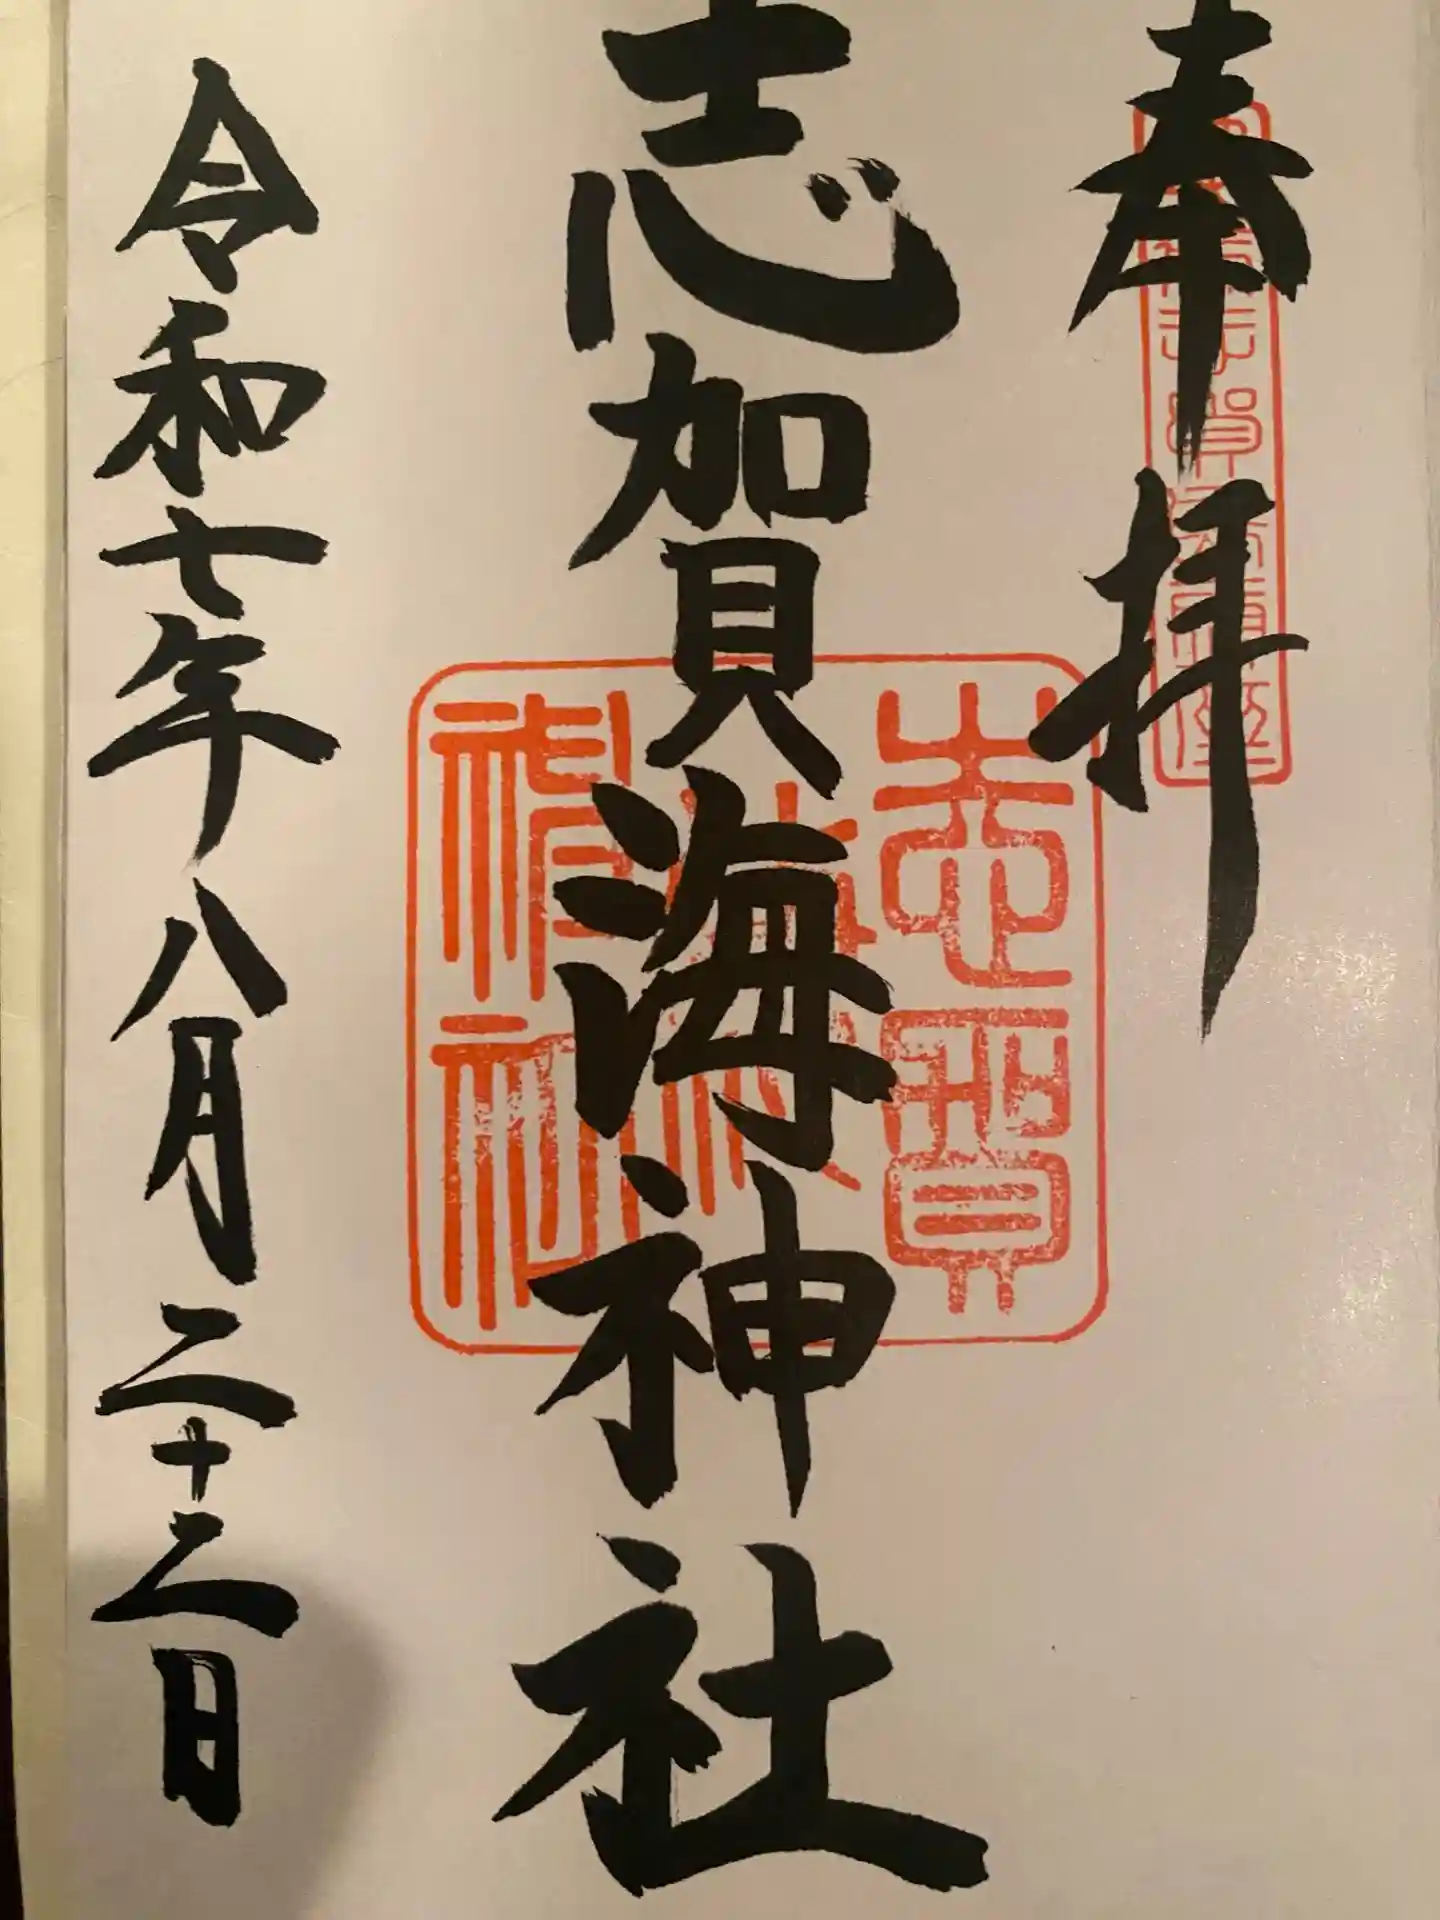 奉拝
志賀海神社
志賀海神社
令和七年八月二十二日